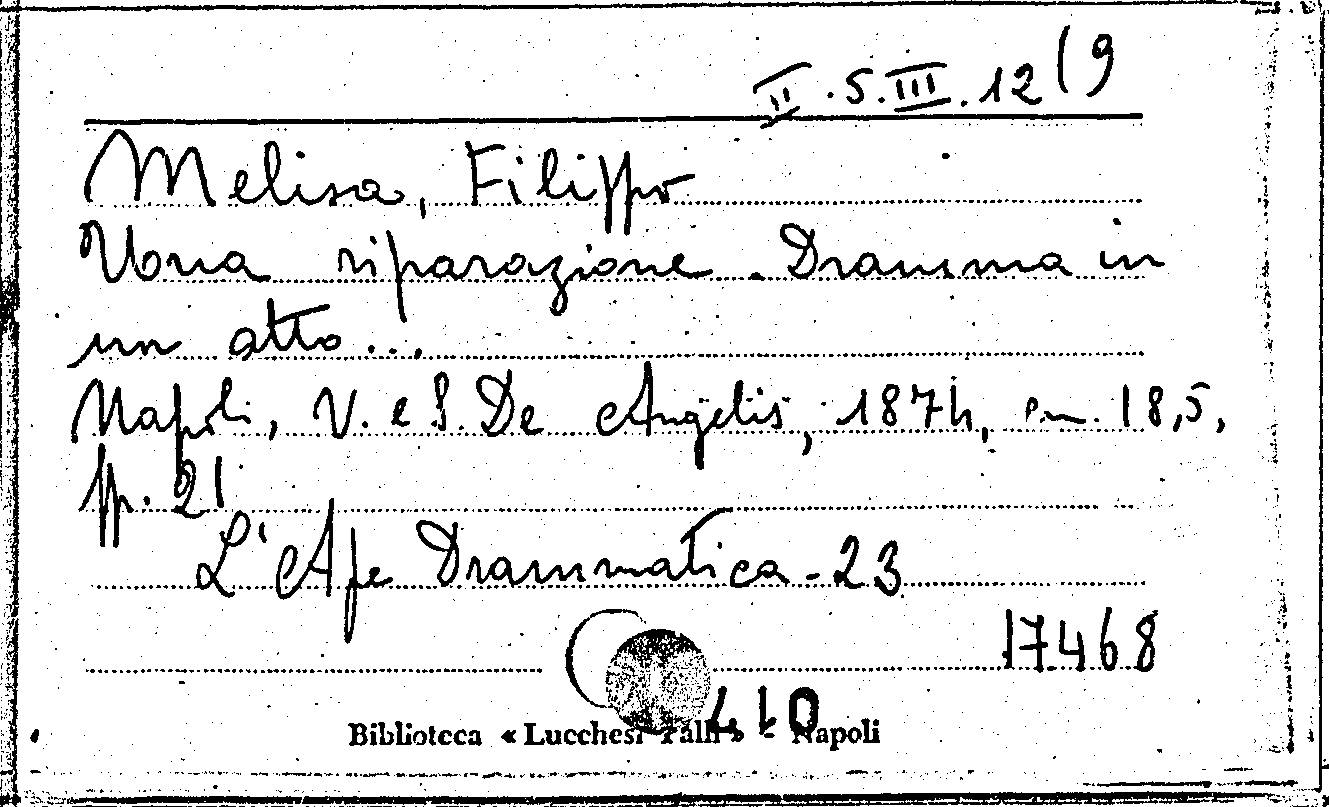 II.5.III.12(9
Melisa, Filippo
Una riparazione. Dramma in
un atto...
Napoli, V. e S. De Angelis, 1874, cm. 18,5,
pp. 21
L'Ape Drammatica - 23
17468
410
Biblioteca « Lucchesi Palli » - Napoli